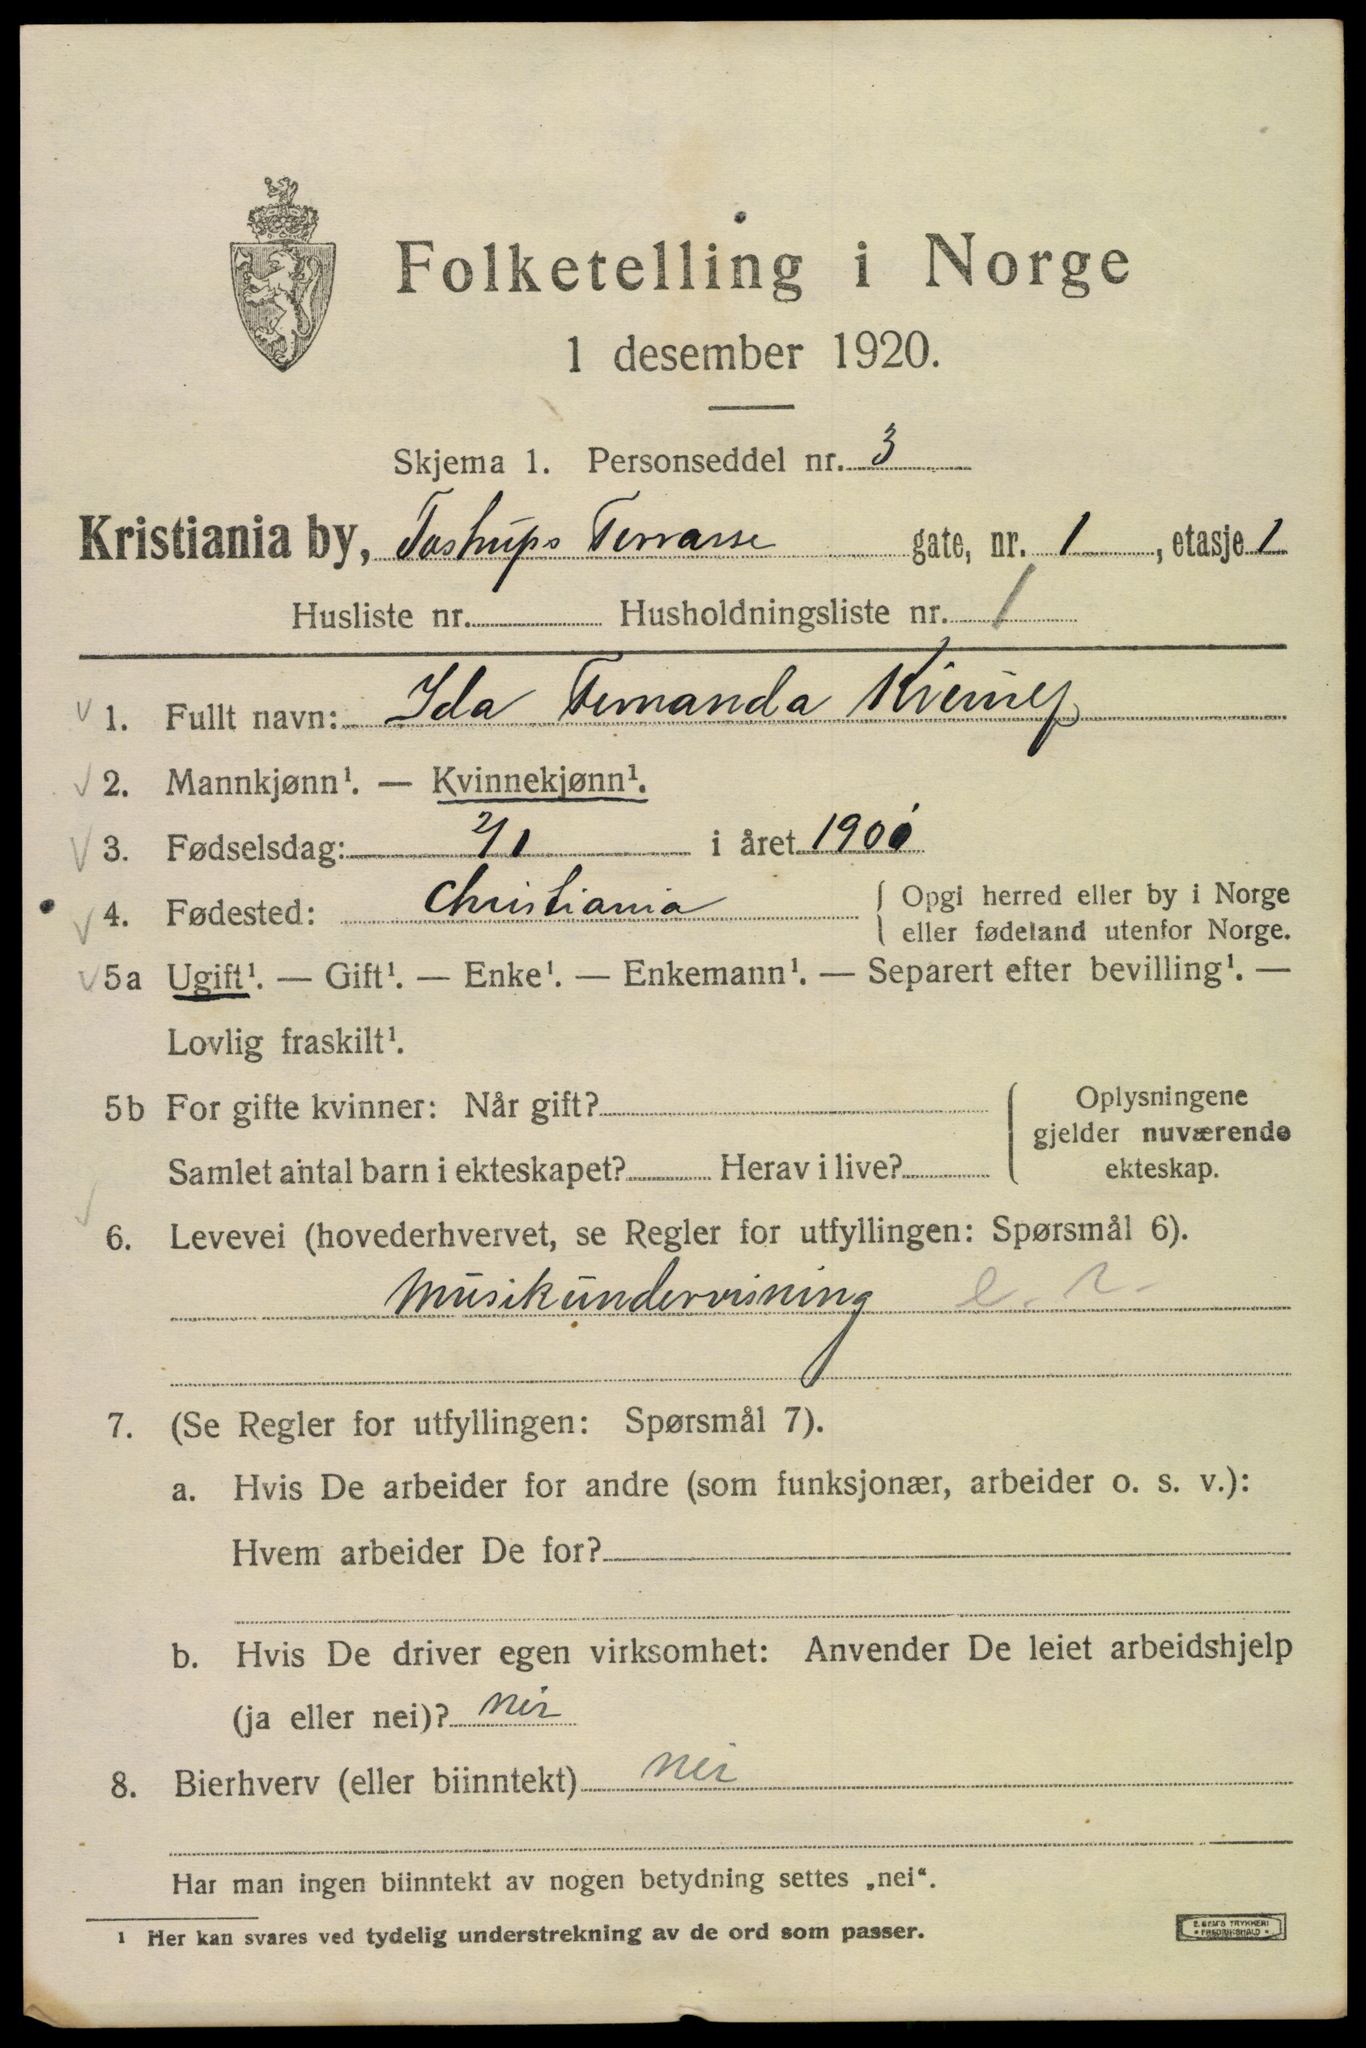 Folketelling i Norge
1 desember 1920.
Skjema 1. Personseddel nr. 3
Kristiania by, Tostrups Terrasse gate, nr. 1, etasje 1
Husliste nr. Husholdningsliste nr. 1
1. Fullt navn: Ida Fernanda
2. Mannkjønn¹. — Kvinnekjønn¹.
3. Fødselsdag: 2/1 i året 1900
4. Fødested: Christiania { Opgi herred eller by i Norge
eller fødeland utenfor Norge.
5a Ugift¹. — Gift¹. — Enke¹. — Enkemann¹. — Separert efter bevilling¹. —
Lovlig fraskilt¹.
5b For gifte kvinner: Når gift? { Oplysningene
gjelder nuværende
Samlet antal barn i ekteskapet? Herav i live? ekteskap.
6. Levevei (hovederhvervet, se Regler for utfyllingen: Spørsmål 6).
Musikundervisning e. r.
7. (Se Regler for utfyllingen: Spørsmål 7).
a. Hvis De arbeider for andre (som funksjonær, arbeider o. s. v.):
Hvem arbeider De for?
b. Hvis De driver egen virksomhet: Anvender De leiet arbeidshjelp
(ja eller nei)? nei
8. Bierhverv (eller biinntekt) nei
Har man ingen biinntekt av nogen betydning settes „nei“.
¹ Her kan svares ved tydelig understrekning av de ord som passer.
E. SEM'S TRYKKERI
FREDRIKSHALD